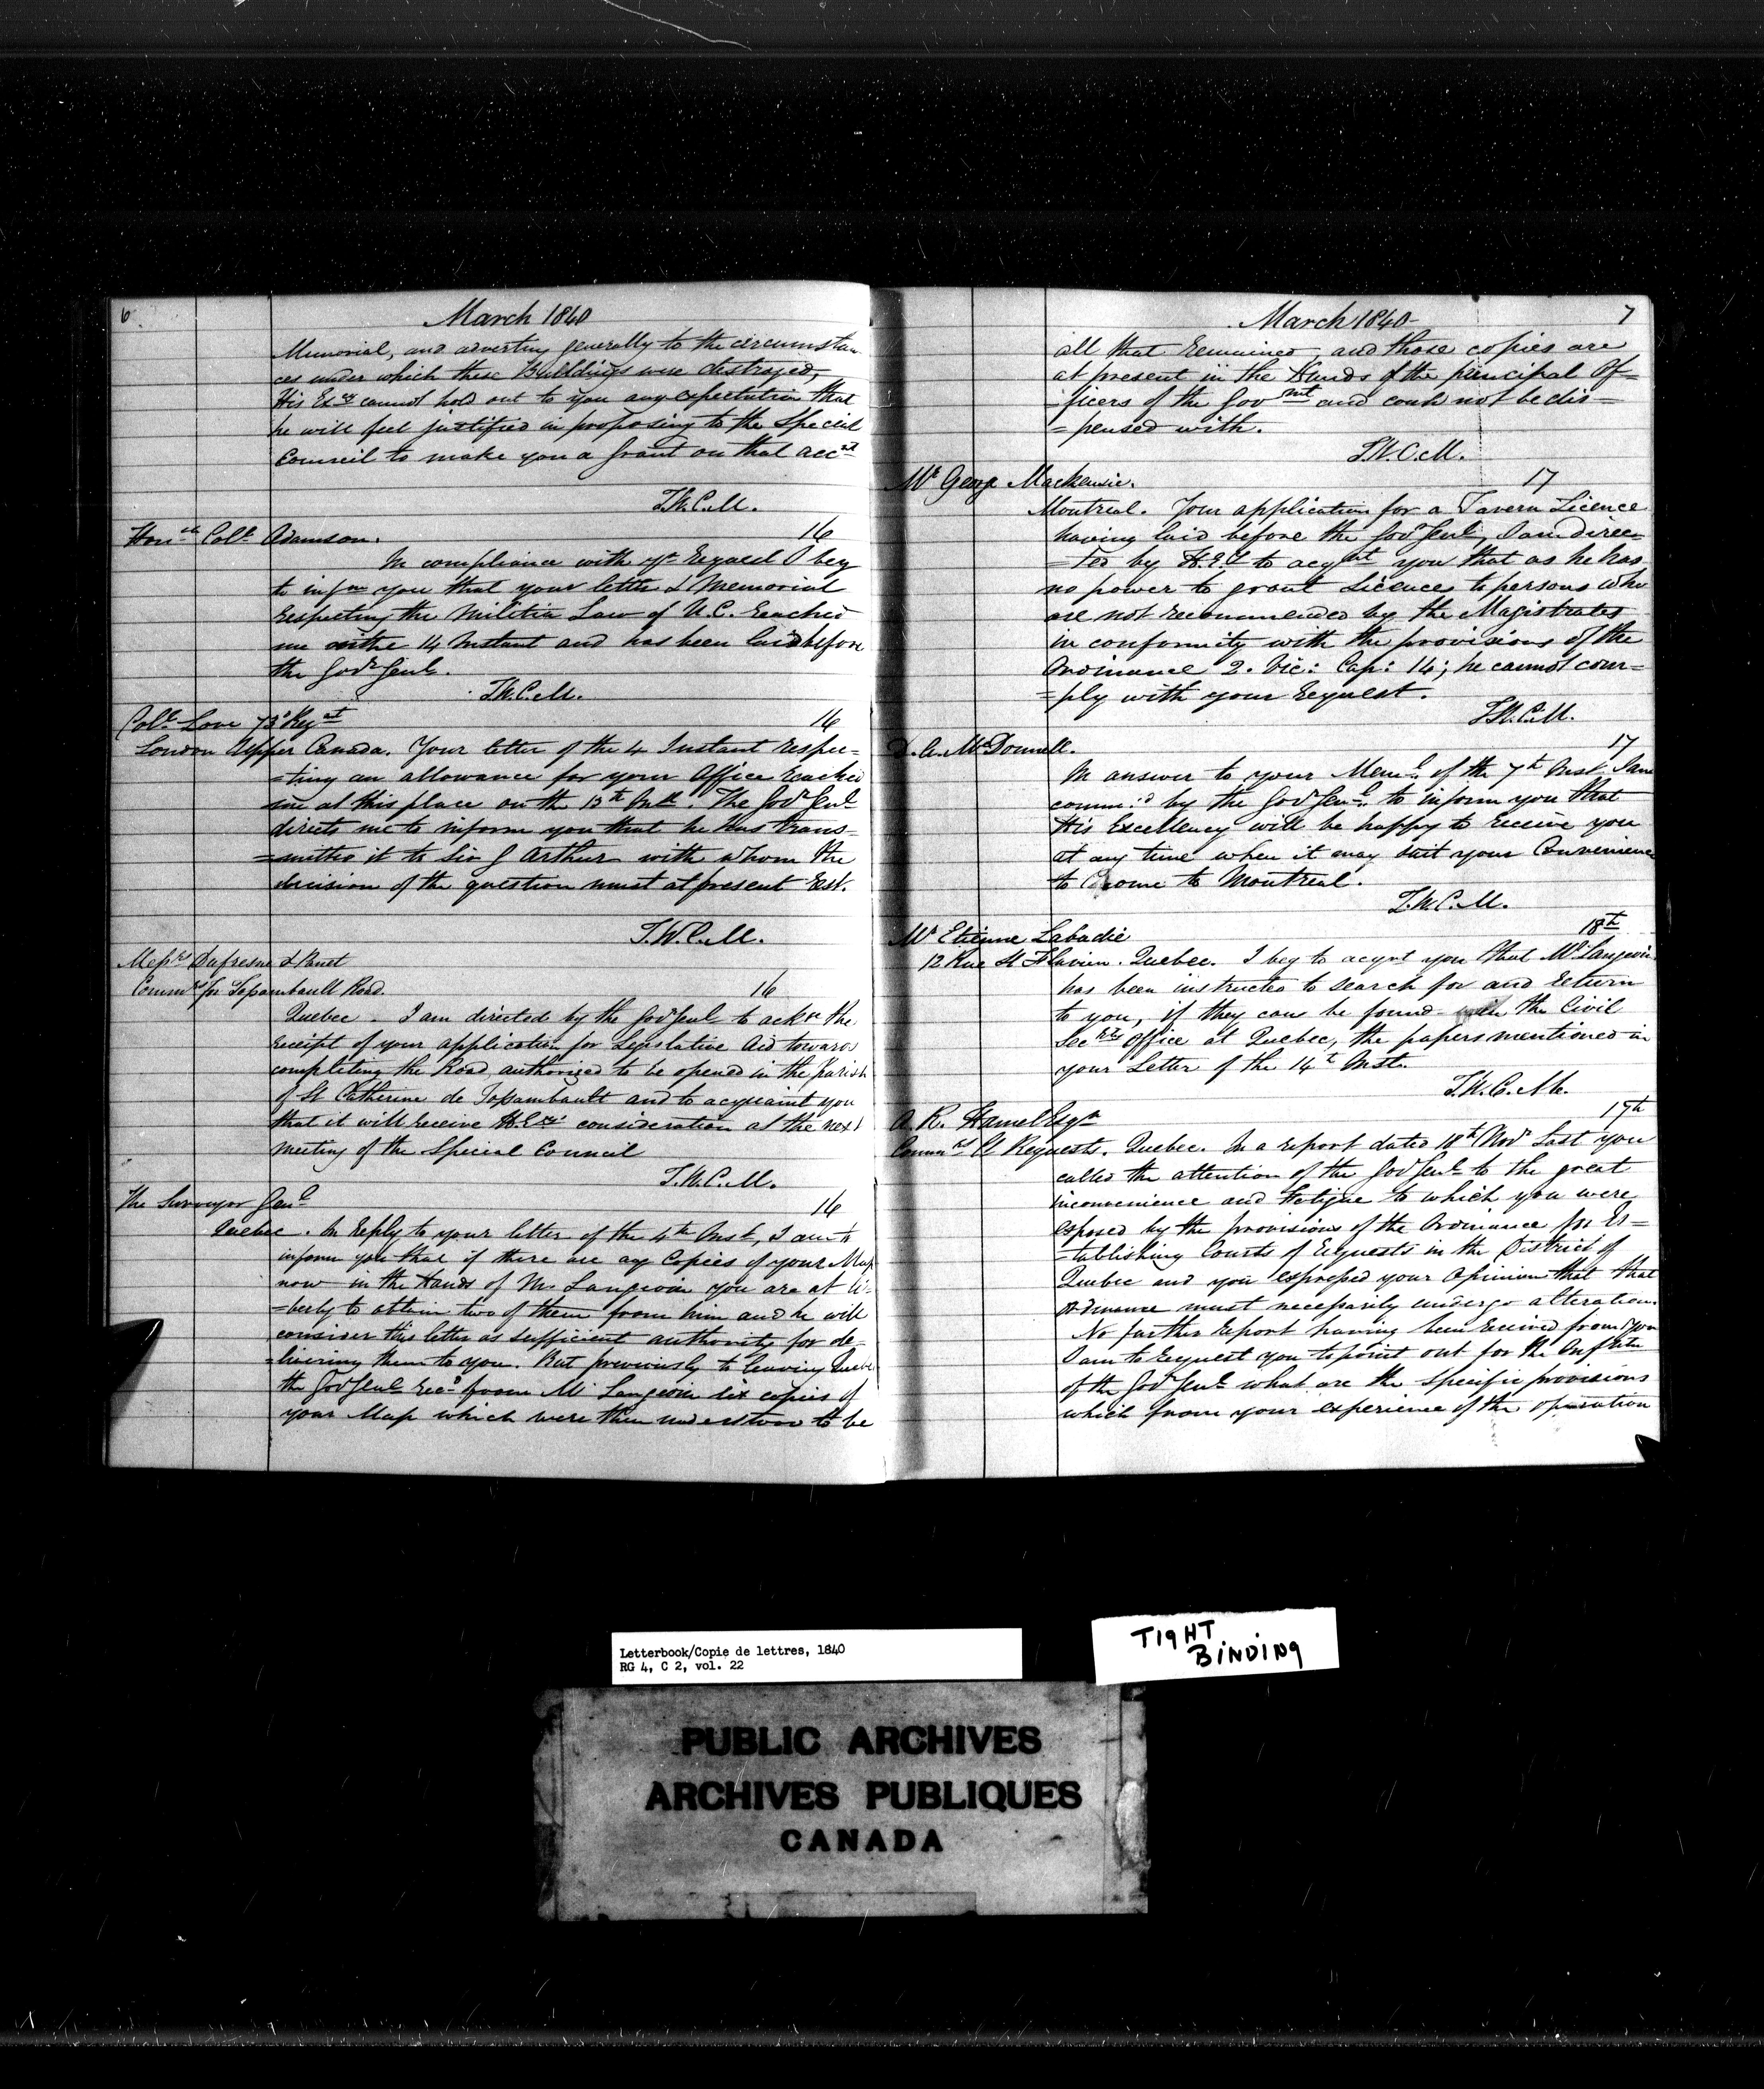 6
March 1840
Memorial, and adverting generally to the circumstan
ces under which these Buildings were destroyed,
His Excy cannot hold out to you any expectation that
he will feel justified in proposing to the Special
Council to make you a Grant on that acct
T.W.C.M.
Honble Coll Adamson. 16
In compliance with yr Request I beg
to infm you that your letter & Memorial
respecting the Militia Law of U.C. reached
me on the 14 Instant and has been laid before
the Govr Genl.
T.W.C.M.
Coll Love 73d Regt 16
London Upper Canada. Your letter of the 4 Instant respec=
=ting an allowance for your Office reached
me at this place on the 13th Inst. The Govr Genl
directs me to inform you that he has trans=
=mitted it to Sir G Arthur with whom the
decision of the question must at present rest.
T.W.C.M.
Messrs Dufresne & Panet
Commrs for Fossambault Road. 16
Quebec. I am directed by the Govr Genl to ackn the
receipt of your application for Legislative Aid towards
completing the Road authorized to be opened in the parish
of St Catherine de Fossambault and to acquaint you
that it will receive H.Exys consideration at the next
meeting of the Special Council
T.W.C.M.
The Surveyor Genl 16
Quebec. In Reply to your letter of the 4th Inst, I am to
inform you that if there are any Copies of your Map
now in the hands of Mr Langevin you are at li=
=berty to obtain two of them from him and he will
consider this letter as sufficient authority for de-
=livering them to you. But previously to leaving Quebec
the Govr Genl recd from Mr Langevin six copies of
your Map which were then understood to be
March 1840 7
all that remained, and those copies are
at present in the Hands of the principal Of=
=ficers of the Govmnt and could not be dis=
=pensed with.
T.W.C.M.
Mr George Mackenzie. 17
Montreal. Your application for a Tavern Licence
having laid before the Govr Genl, I am direc=
=ted by H.E. to acqnt you that as he has
no power to grant Licences to persons who
are not recommended by the Magistrates
in conformity with the provisions of the
Ordinance 2. Vic: Cap: 14; he cannot com=
=ply with your request.
T.W.C.M.
D. A. McDonnell. 17
In answer to your Meml of the 7th Inst I am
commd by the Govr Genl to inform you that
His Excellency will be happy to receive you
at any time when it may suit your Convenience
to come to Montreal.
T.W.C.M.
Mr Etienne Labadie 18th
12 Rue St Flavien. Quebec. I beg to acqnt you that Mr Langevin
has been instructed to search for and return
to you, if they can be found in the Civil
Secrys Office at Quebec, the papers mentioned in
your Letter of the 14th Inst.
T.W.C.M.
A. R. Hamel Esqr 17th
Commr Ct Requests. Quebec. In a report dated 18th Novr last you
called the attention of the Govr Genl to the great
inconvenience and fatigue to which you were
exposed by the provisions of the Ordinance for Es=
=tablishing Courts of Requests in the District of
Quebec and you expressed your opinion that that
Ordinance must necessarily undergo alteration.
No further report having been received from you
I am to request you to point out for the
of the Govr Genl what are the specific provisions
which from your experience of the operation
Letterbook/Copie de lettres, 1840
RG 4, C 2, vol. 22
TIGHT
BINDING
PUBLIC ARCHIVES
ARCHIVES PUBLIQUES
CANADA